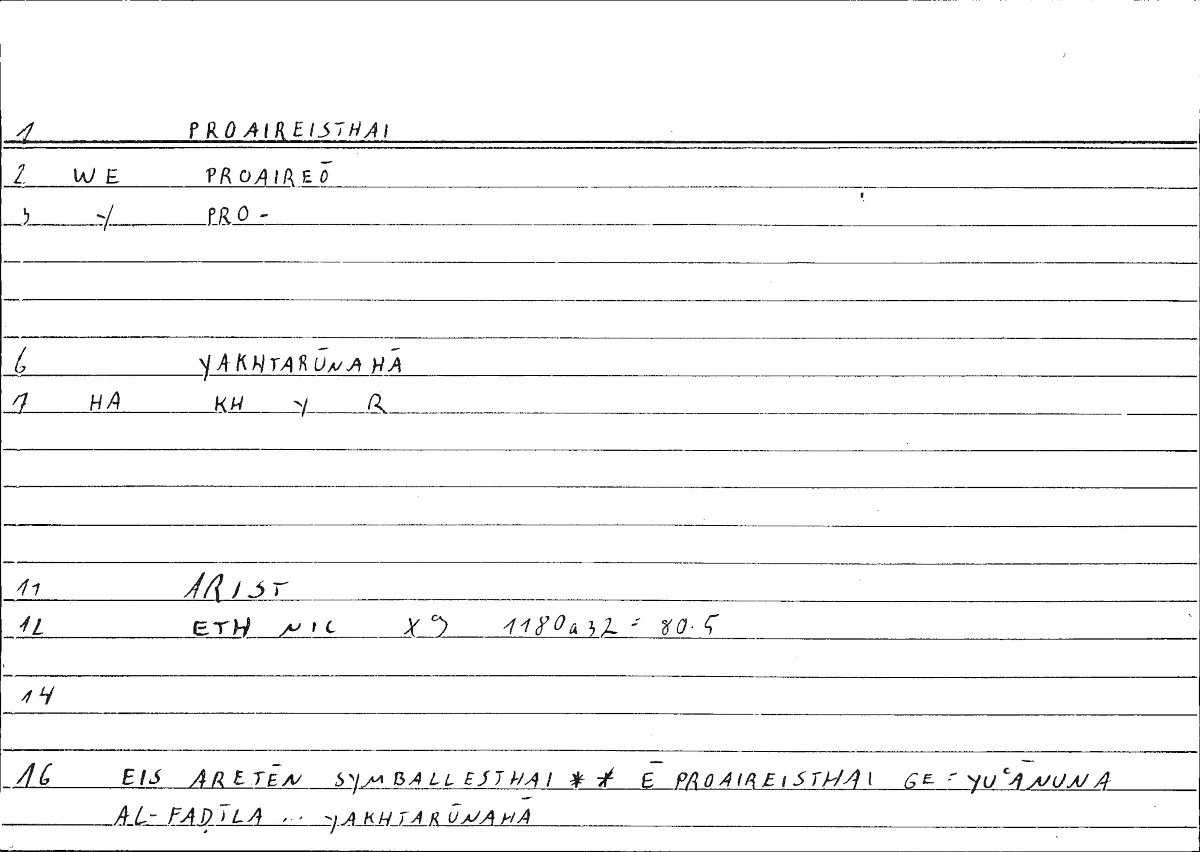 1 PROAIREISTHAI
2 WE PROAIREŌ
3 -/ PRO-
6 YAKHTARŪNAHĀ
7 HA KH Y R
11 ARIST
12 ETH NIC X 9 1180a32 = 80.5
14
16 EIS ARETĒN SYMBALLESTHAI * * Ē PROAIREISTHAI GE = YUʿĀNUNA
AL-FAḌĪLA ... YAKHTARŪNAHĀ